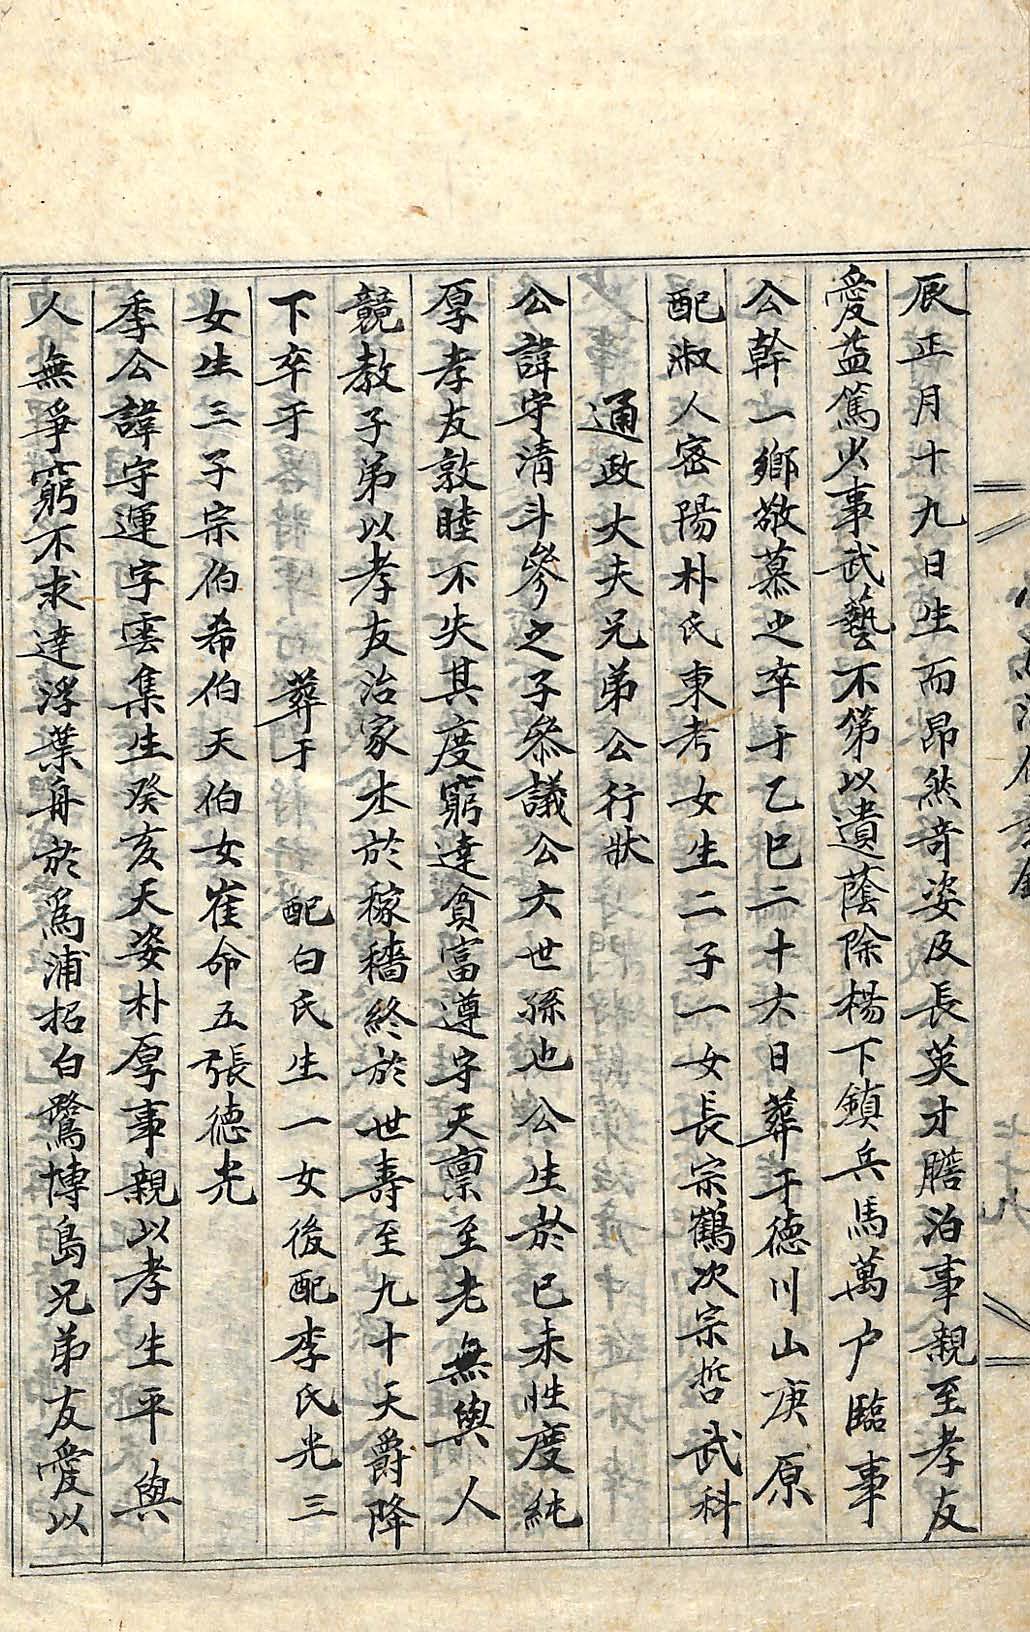 辰正月十九日生而昂然奇姿及長英才膽泊事親至孝友
愛益篤少事武藝不第以遺蔭除楊下鎮兵馬萬户臨事
公幹一鄉敬慕之卒于乙巳二十六日葬于德川山庚原
配淑人密陽朴氏東考女生二子一女長宗鶴次宗哲武科
通政大夫兄弟公行狀
公諱守清斗參之子叅議公六世孫也公生於已未性度純
厚孝友敦睦不失其度窮達貧富遵守天禀至老無與人
競教子弟以孝友治家本於稼穡終於世壽至九十天爵降
下卒于 葬于 配白氏生一女後配李氏光三
女生三子宗伯希伯天伯女崔命五張德光
季公諱守運字雲集生癸亥天姿朴厚事親以孝生平與
人無爭窮不求達浮葉舟於爲浦招白鷺博島兄弟友愛以
七十九